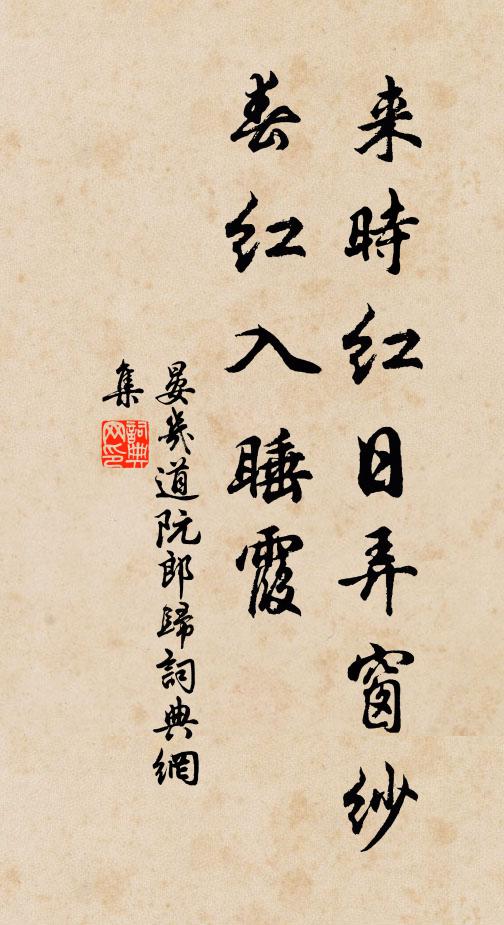 来時紅日弄窗紗
春紅入睡霞
晏幾道阮郎歸詞典網
集
詞典網印